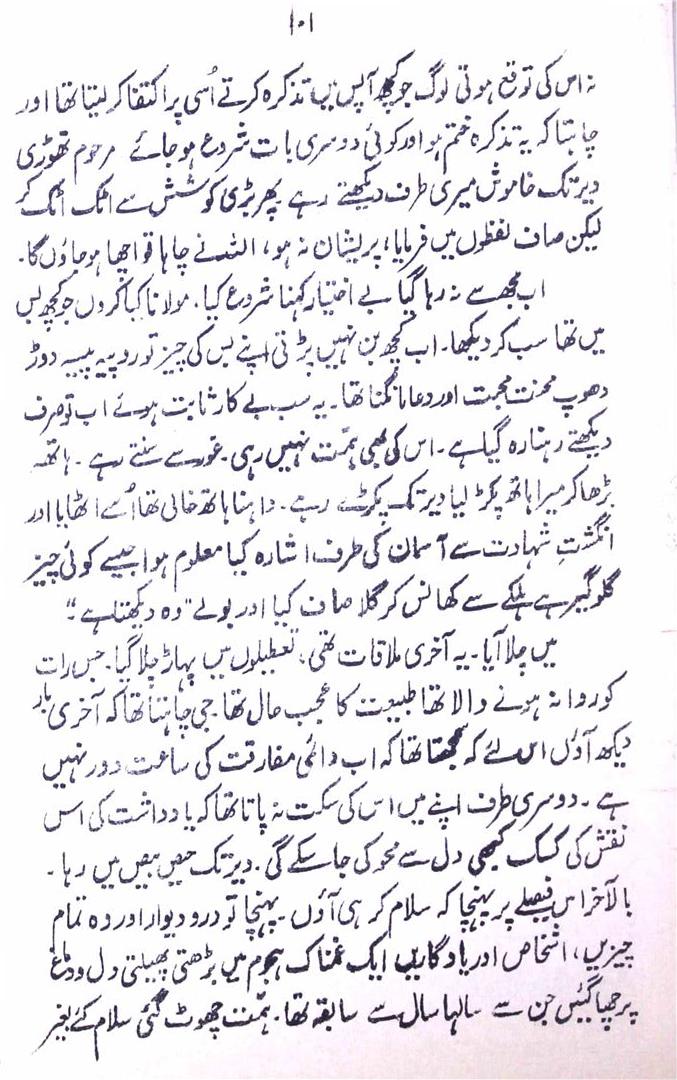 ۱۰۱
نہ اس کی توقع ہوتی لوگ جو کچھ آپس میں تذکرہ کرتے اُسی پر اکتفا کر لیتا تھا اور
چاہتا کہ یہ تذکرہ ختم ہو اور کوئی دوسری بات شروع ہو جائے مرحوم تھوڑی
دیر تک خاموش میری طرف دیکھتے رہے پھر بڑی کوشش سے اٹک اٹک کر
لیکن صاف لفظوں میں فرمایا، پریشان نہ ہو، اللہ نے چاہا تو اچھا ہو جاؤں گا۔
اب مجھ سے نہ رہا گیا بے اختیار کہنا شروع کیا۔ مولانا کیا کروں جو کچھ بس
میں تھا سب کر دیکھا۔ اب کچھ بن نہیں پڑتی اپنے بس کی چیز تو روپیہ پیسہ دوڑ
دھوپ محنت محبت اور دعا مانگنا تھا۔ یہ سب بے کار ثابت ہوئے اب تو صرف
دیکھتے رہنا رہ گیا ہے۔ اس کی بھی ہمّت نہیں رہی۔ غور سے سنتے رہے۔ ہاتھ
بڑھا کر میرا ہاتھ پکڑ لیا دیر تک پکڑے رہے۔ داہنا ہاتھ خالی تھا اُسے اٹھایا اور
انگشتِ شہادت سے آسمان کی طرف اشارہ کیا معلوم ہوا جیسے کوئی چیز
گلوگیر ہے ہلکے سے کھانس کر گلا صاف کیا اور بولے "وہ دیکھتا ہے"۔
میں چلا آیا۔ یہ آخری ملاقات تھی۔ تعطیلوں میں پہاڑ چلا گیا۔ جس رات
کو روانہ ہونے والا تھا طبیعت کا عجب حال تھا۔ جی چاہتا تھا کہ آخری بار
دیکھ آؤں اس لئے کہ سمجھتا تھا کہ اب دائمی مفارقت کی ساعت دور نہیں
ہے۔ دوسری طرف اپنے میں اس کی سکت نہ پاتا تھا کہ یادداشت کی اس
نقش کی کسک کبھی دل سے محو کی جا سکے گی۔ دیر تک حیص بیص میں رہا۔
بالآخر اس فیصلے پر پہنچا کہ سلام کر ہی آؤں۔ پہنچا تو در و دیوار اور وہ تمام
چیزیں، اشخاص اور یادگاریں ایک غمناک ہجوم میں بڑھتی پھیلتی دل و دماغ
پر چھا گئیں جن سے سالہا سال سے سابقہ تھا۔ ہمّت چھوٹ گئی سلام کئے بغیر